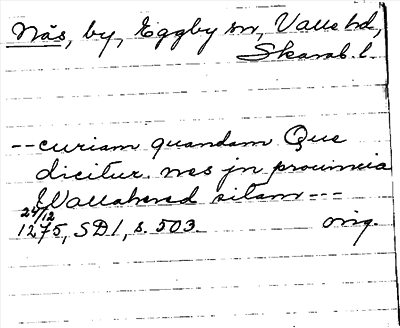 Näs, by, Eggby sn, Valle hd,
Skarab. l.
-- curiam quandam Que
dicitur nes jn prouincia
Wallahered sitam ---
24/12
1275, SD 1, s. 503. orig.